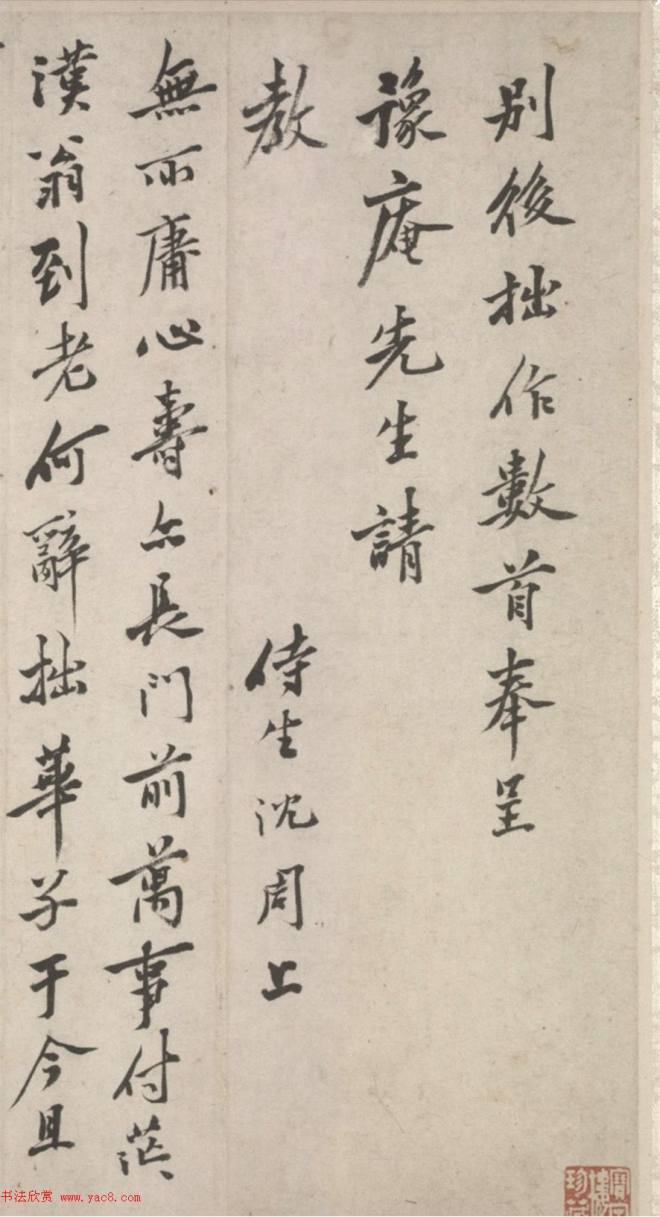 別後拙作數首奉呈
豫庵先生請
教
侍生沈周上
無所庸心壽亦長門前萬事付茫〻
漢翁到老何辭拙華子于今且
书法欣赏 www.yac8.com